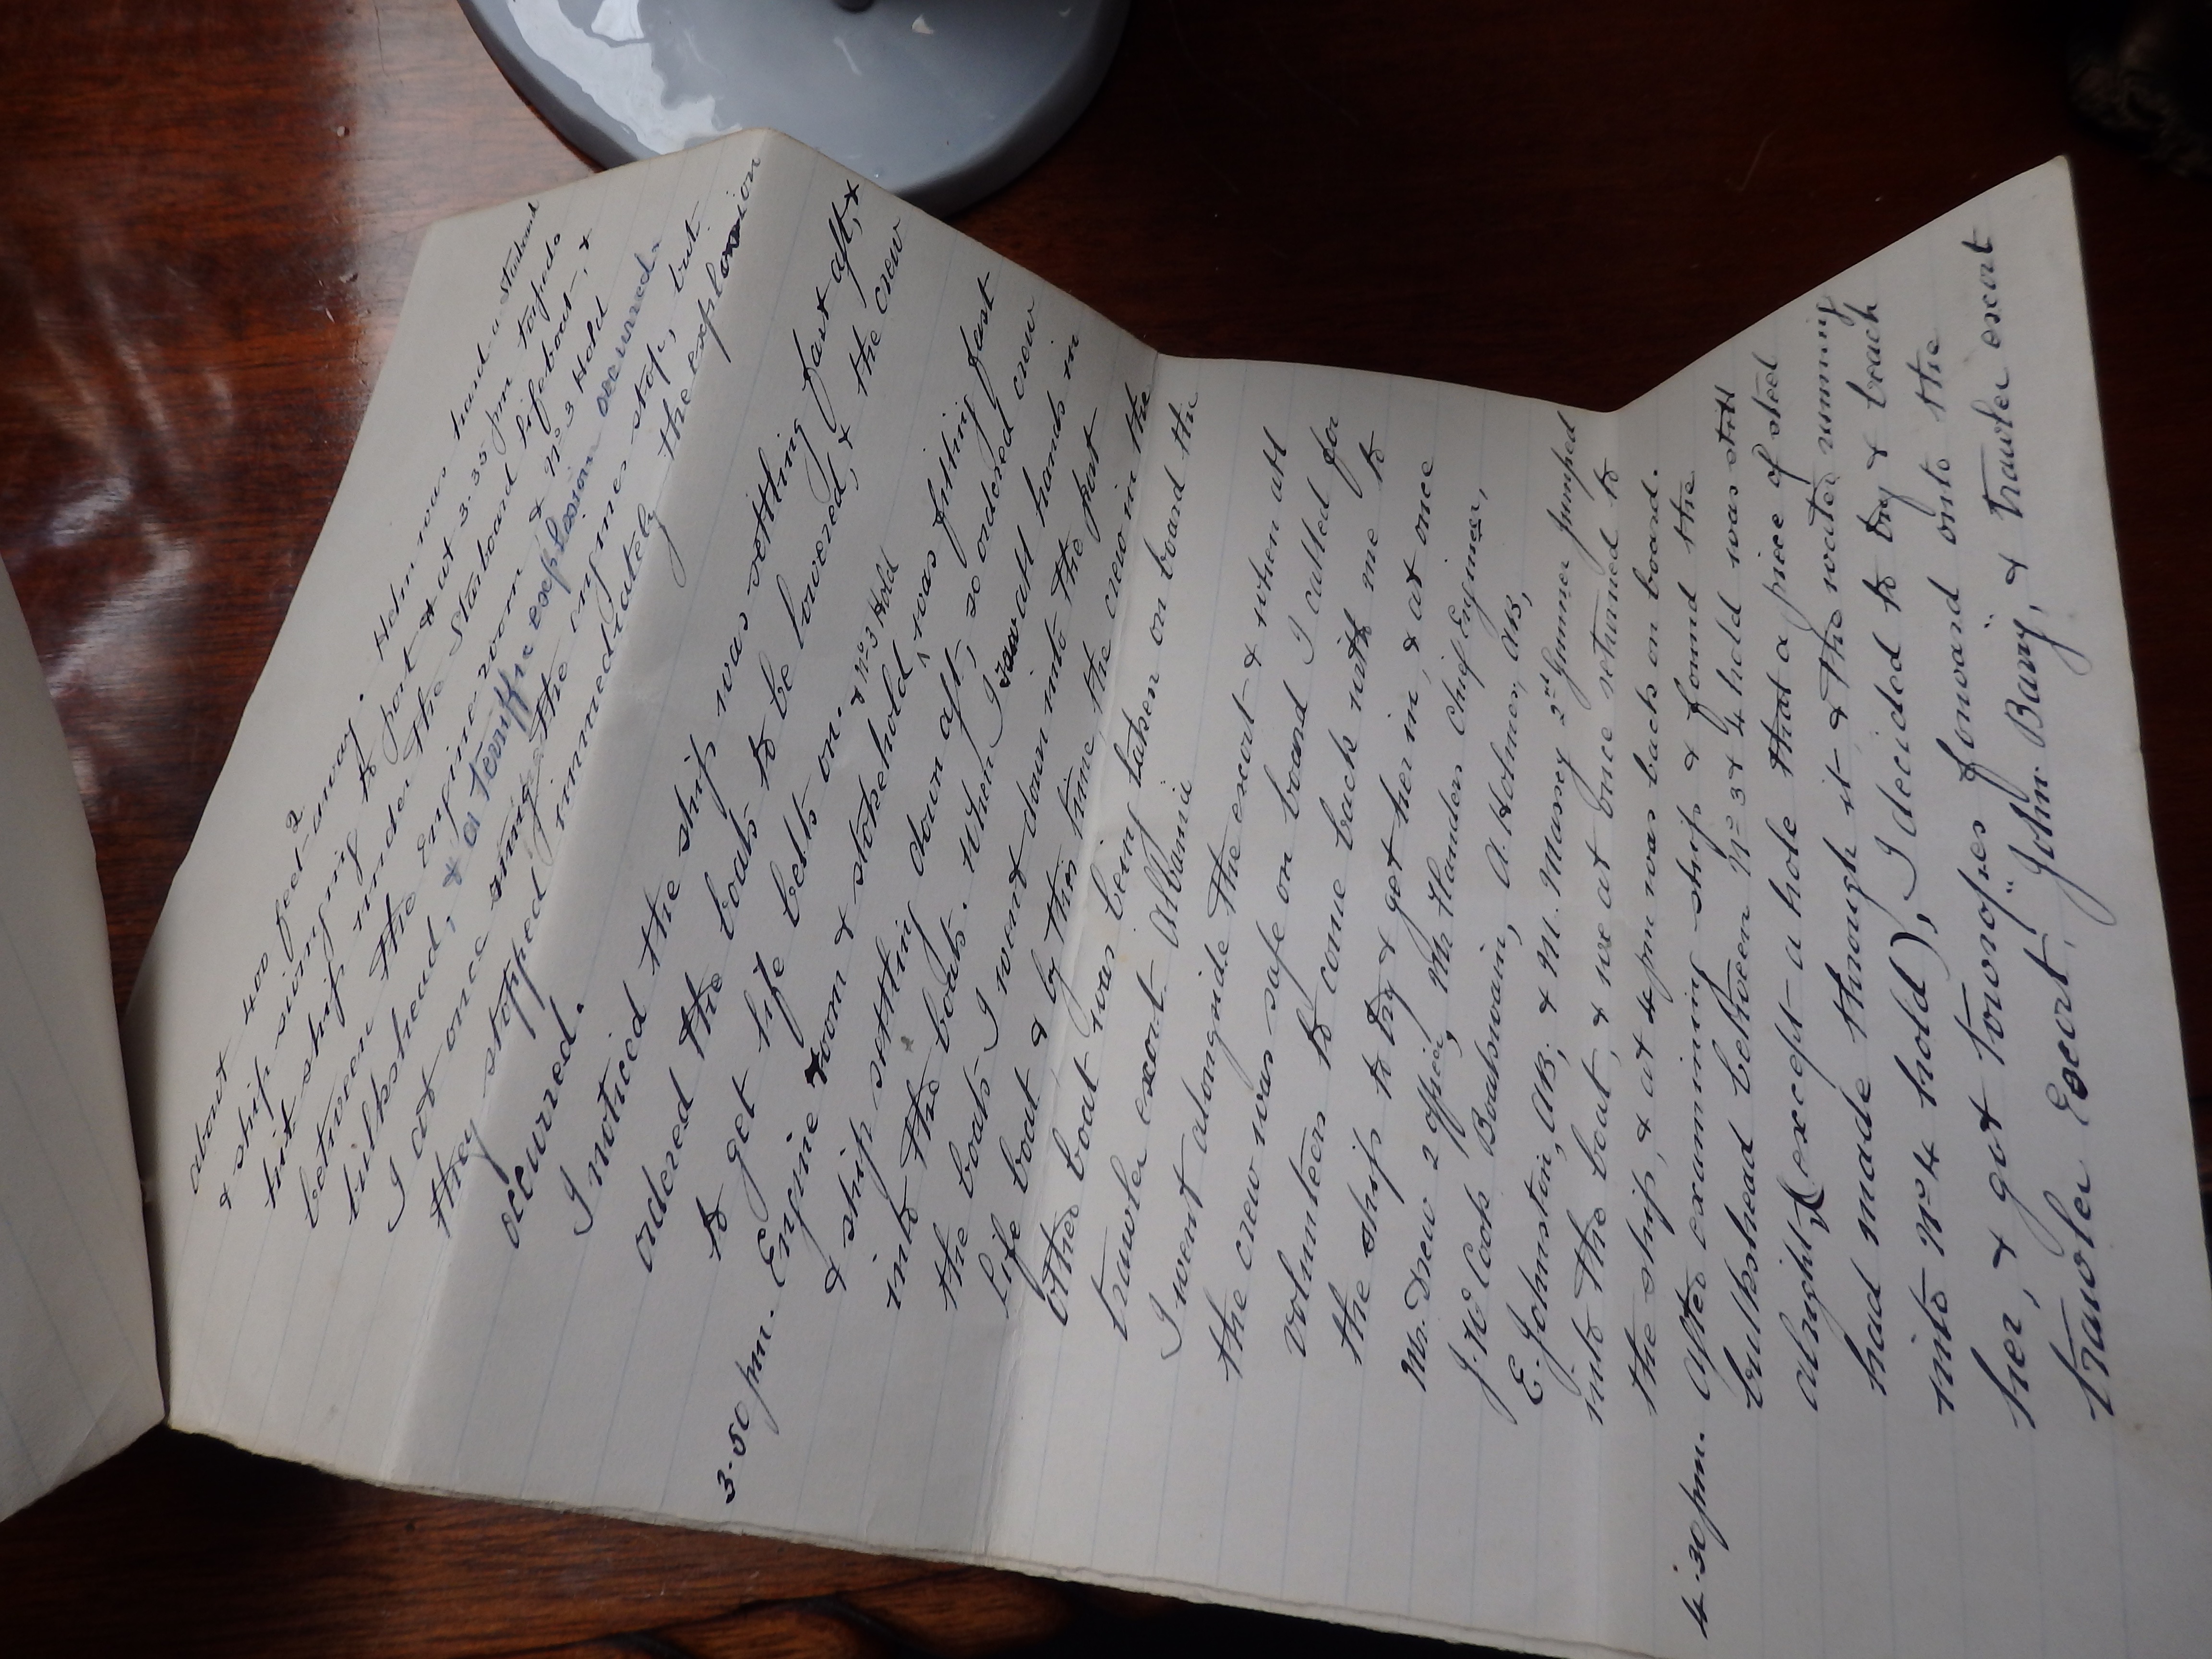 about 400 feet 2 away. Helm was hard a Starboard
& ship swinging to port & at 3.35 pm torpedo
hit ship under the Starboard lifeboat, &
between the Engine room & No 3 Hold
bulkshead, & a Terriffic explossion occurred.
I at once rang the engines stop, but
they stopped immediately the explosion
occurred.
I noticed the ship was settling fast aft, &
ordered the boats to be lowered, & the crew
to get life belts on. & No 3 Hold
3.50 pm. Engine room & stokehold ^ was filling fast
& ship settling down aft, so ordered crew
into the boats. When I saw all hands in
the boats I went down into the port
Life boat & by this time, the crew in the
other boat was being taken on board the
trawler escort Albania
I went alongside the escort & when all
the crew was safe on board I called for
volunteers to come back with me to
the ship to try & get her in, & at once
Mr. Drew 2 officer, Mr Flanders Chief Engineer,
J. W Cook Boatswain, A. Holmes, AB,
E. Johnston, AB, & M. Massey 2nd Gunner jumped
into the boat, & we at once returned to
the ship, & at 4 pm was back on board.
4.30 pm. After examining ship & found the
bulkshead between No 3 & 4 hold was still
alright (except a hole that a piece of steel
had made through it & the water running
into No 4 hold), I decided to try & beach
her, & got towropes forward onto the
trawler Escort "John Barry, & trawler escort